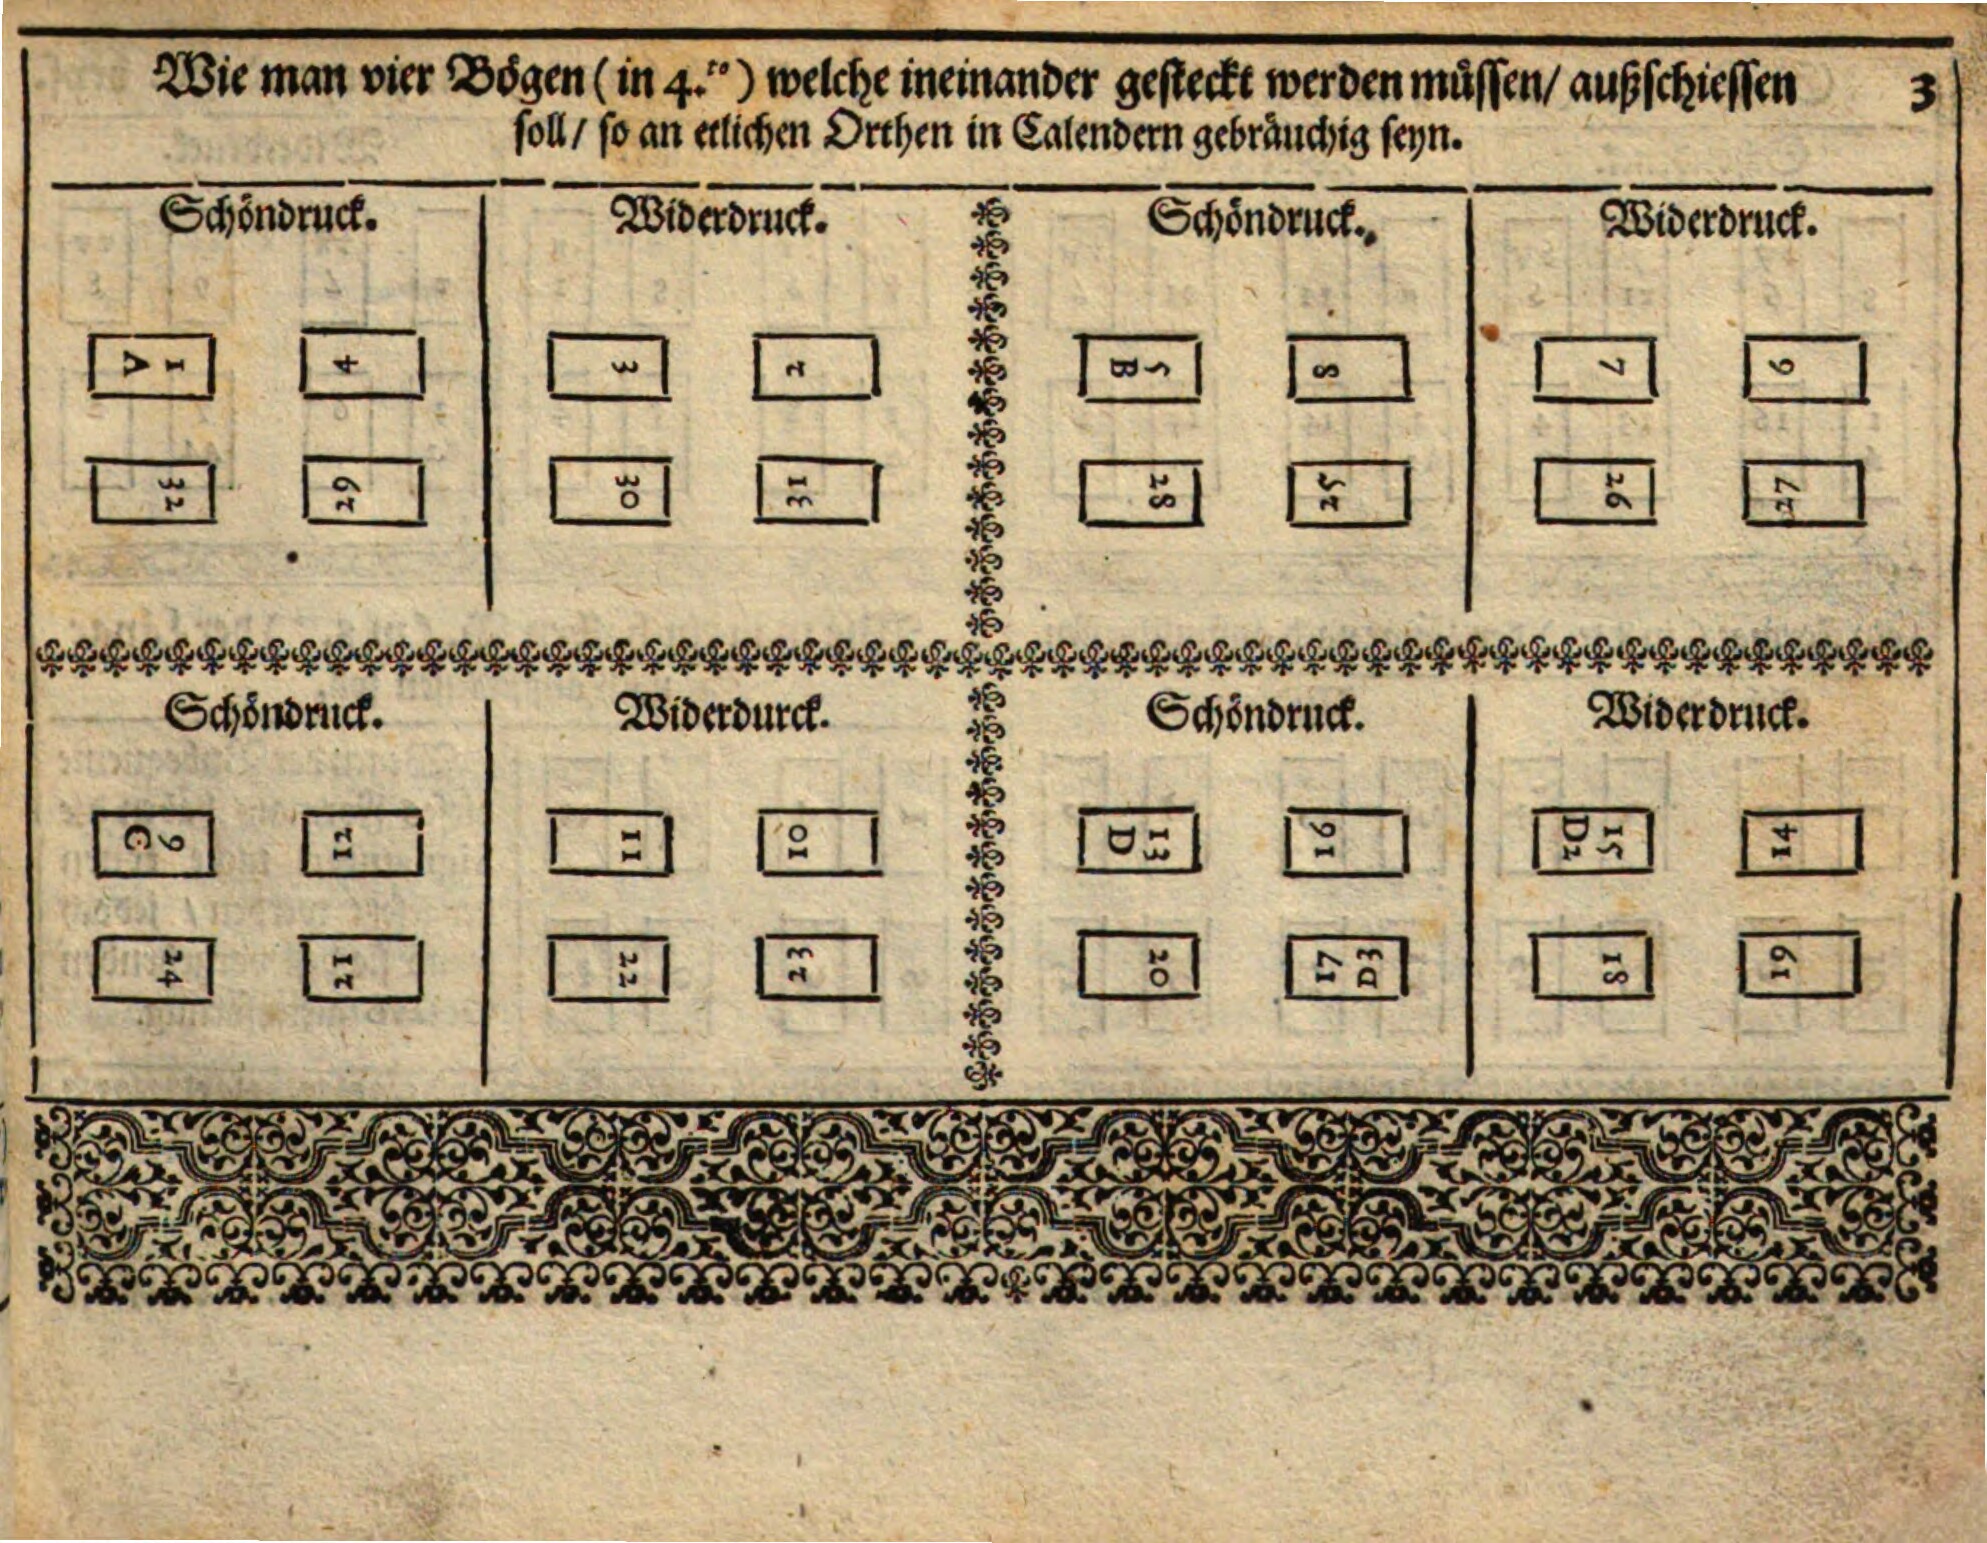 Wie man vier Bögen (in 4.to) welche ineinander gesteckt werden müssen/ außschiessen 3
soll/ so an etlichen Orthen in Calendern gebräuchig seyn.
Schöndruck.
1
A
4
32
29
Widerdruck.
3
2
30
31
Schöndruck.
5
B
8
28
25
Widerdruck.
7
6
26
27
Schöndruck.
9
C
12
24
21
Widerdurck.
11
10
22
23
Schöndruck.
13
D
16
20
17
D3
Widerdruck.
15
D2
14
18
19